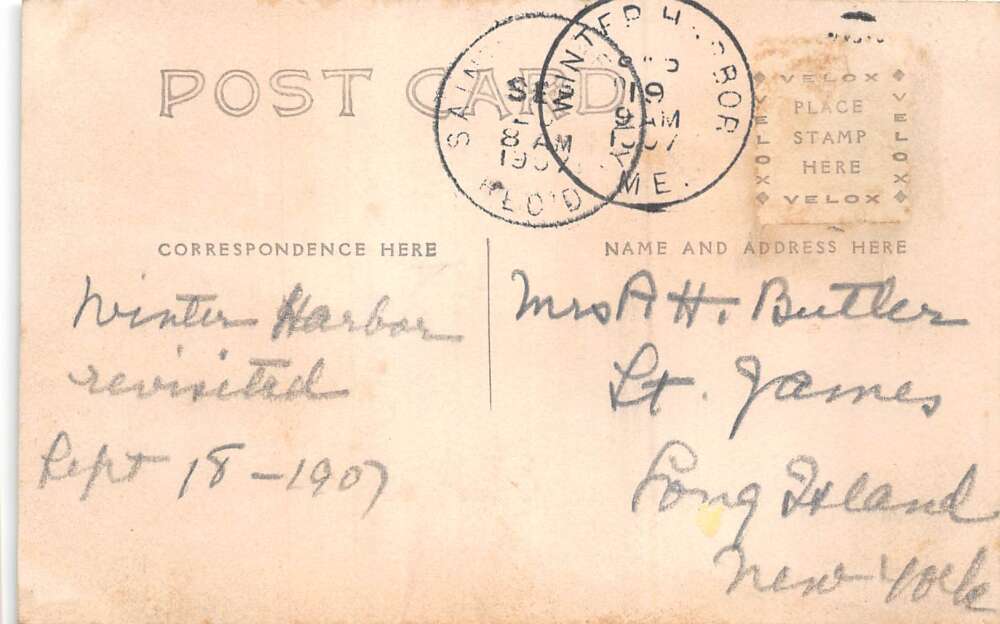 POST CARD
WINTER HARBOR
ME.
19
9 AM
1907
SE
8 AM
1907
REC'D
VELOX
VELOX
VELOX
VELOX
PLACE
STAMP
HERE
CORRESPONDENCE HERE
NAME AND ADDRESS HERE
Winter Harbor
revisited
Sept 18 - 1907
Mrs A H. Butler
St. James
Long Island
New York